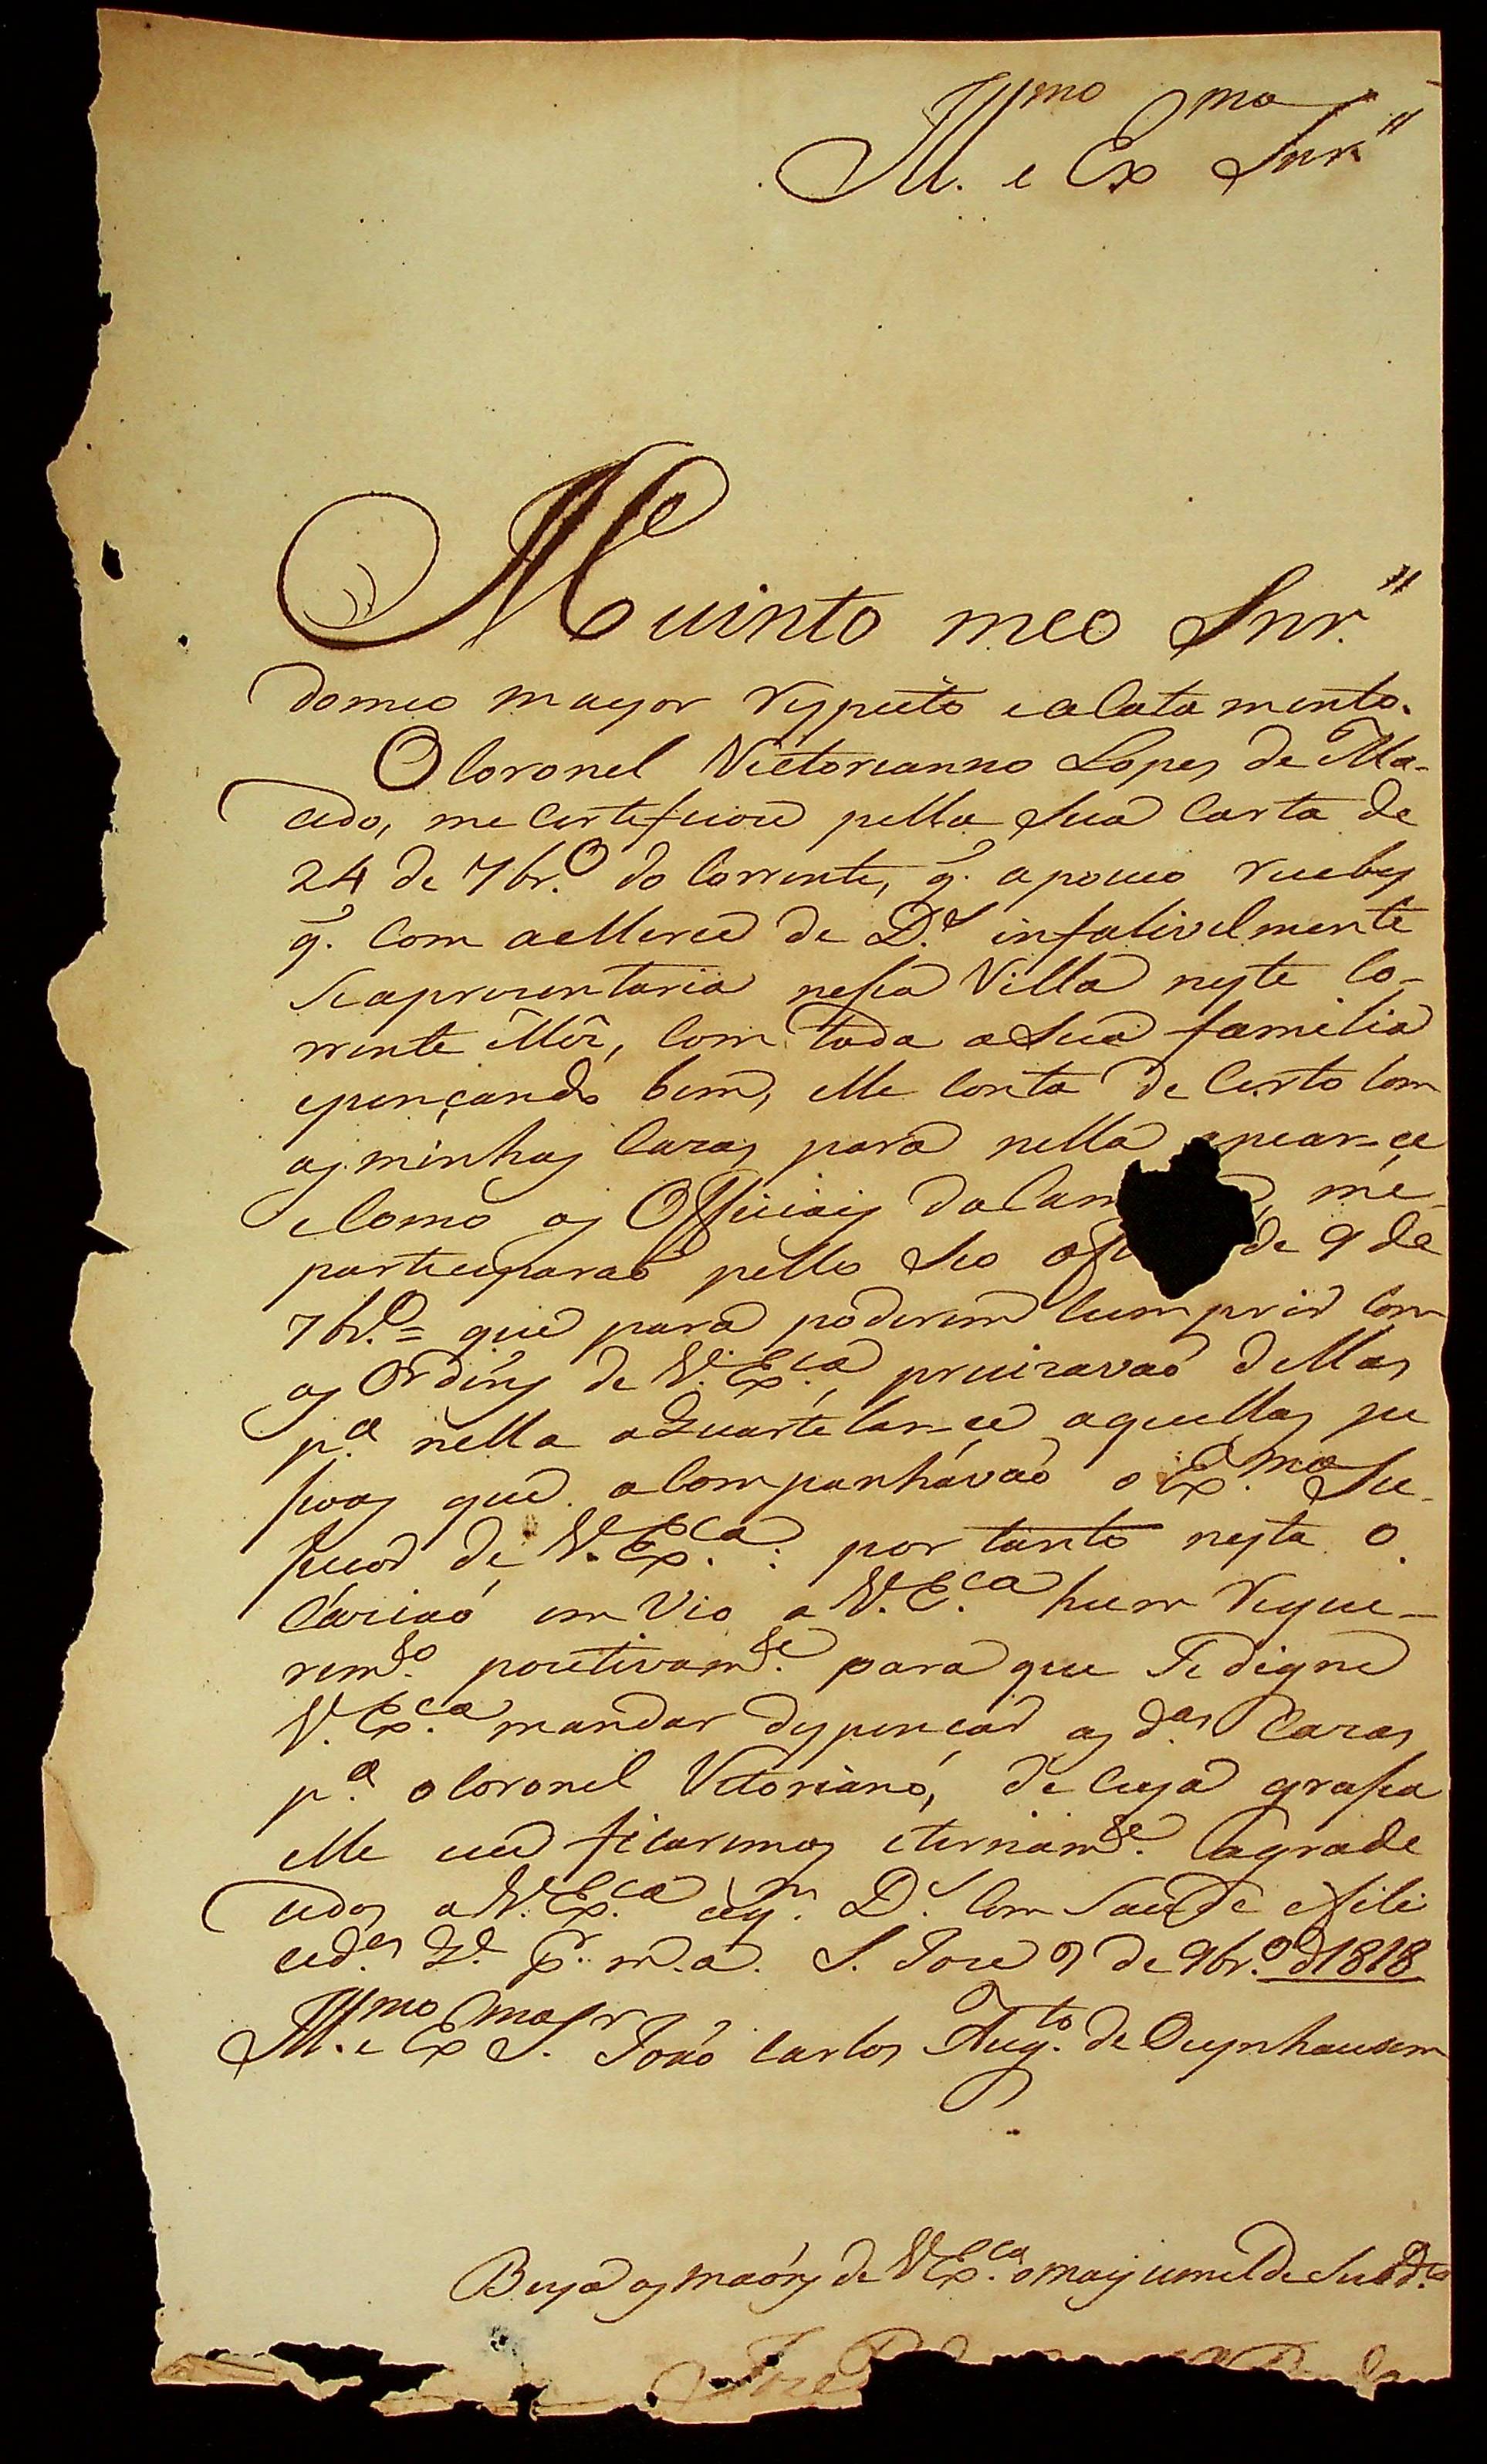 Ill.mo e Ex.mo Snr.
Muinto meo Snr.
domeo mayor respeito ealcatamento.
O Coronel Victorianno Lopes de Ma-
cedo, me Certeficou pella Sua Carta de
24 de 7br.o do Corrente, q. apouco recebi
q. Com aMerce de D.s infalivelmente
Seaprezentaria nessa Villa neste Co-
rrente Mes, Com toda aSua familia
epençando bem, elle Conta de Certo Com
as minhas Cazas para nella apear-ce
eComo os Officiais daCam me
participarao pello Seo de 9 de
7br.o = que para poderem Cumprir Com
as Ordens de V. Ex.ca precizavao dellas
p.a nella aQuartelar-ce aquellas pe
ssoas que aCompanhávaõ o Ex.mo Su-
cessor de V. Ex.ca: por tanto nesta O
Cazião em Vio a V. E.ca hum reque-
rem.to pozitivam.te para que Se digne
V. Ex.ca mandar dispençar as d.as Cazas
p.a oCoronel Vitoriano, de Cuja grassa
elle eeu ficaremos eternam.te agrade
cidos a V. Ex.ca aq.m D.s Com Saude efili
cid.es G.e P.r m.a. S. Joze 9 de 9br.o d1818
Ill.mo e Ex.mo S.r João Carlos Aug.to de Oeynhausem
Beija as maõs de V Ex.ca omais umilde Subd.to
Joze